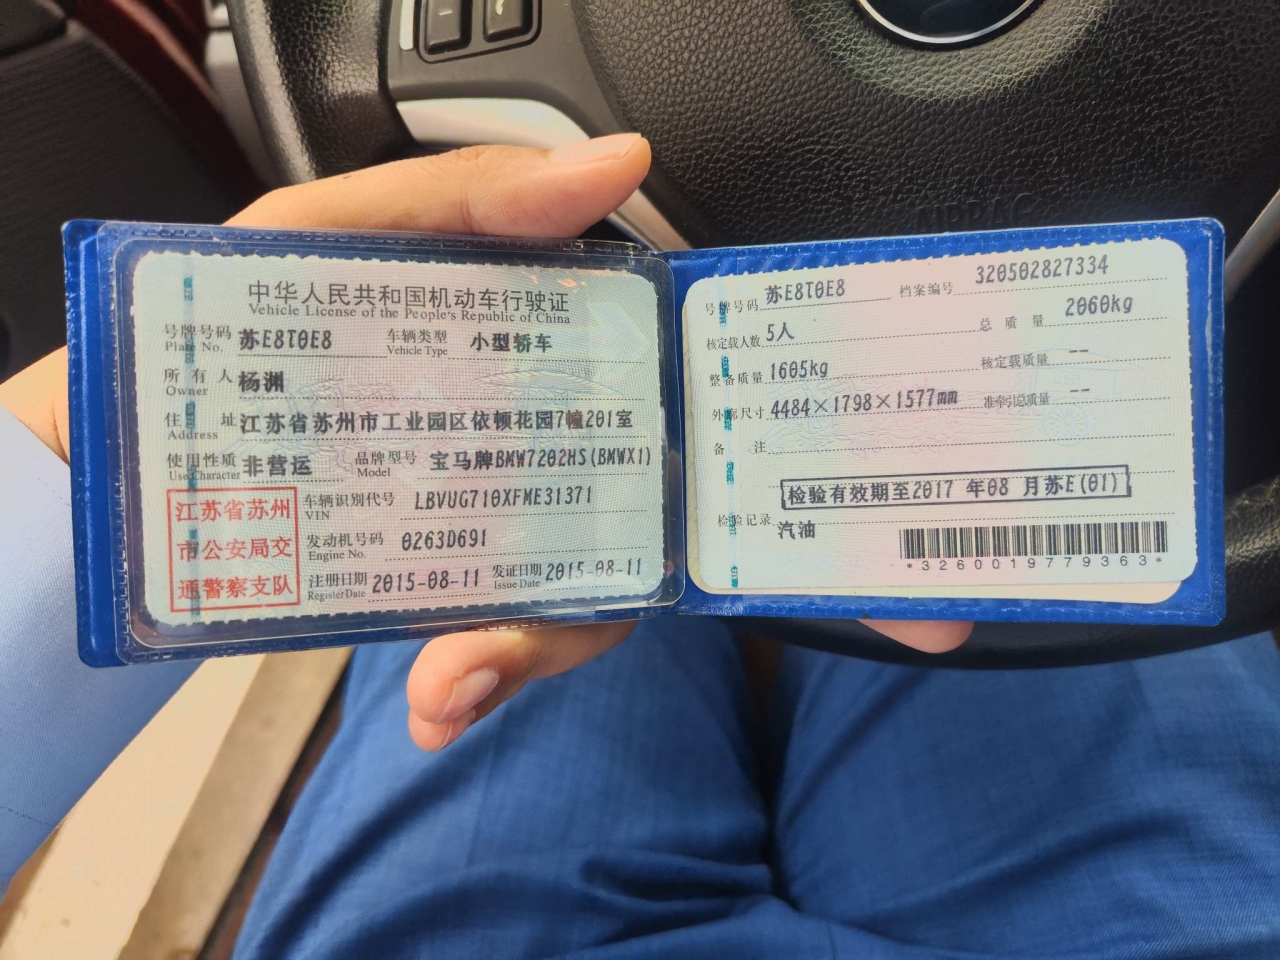 中华人民共和国机动车行驶证
Vehicle License of the People's Republic of China
号牌号码 苏E8T0E8 车辆类型 小型轿车
Plate No. Vehicle Type
所有人 杨洲
Owner
住址 江苏省苏州市工业园区依顿花园7幢201室
Address
使用性质 非营运 品牌型号 宝马牌BMW7202HS(BMWX1)
Use Character Model
江苏省苏州
市公安局交
通警察支队
车辆识别代号 LBVUG710XFME31371
VIN
发动机号码 0263D691
Engine No.
注册日期 2015-08-11 发证日期 2015-08-11
Register Date Issue Date
号牌号码 苏E8T0E8 档案编号 320502827334
核定载人数 5人 总质量 2060kg
整备质量 1605kg 核定载质量 --
外廓尺寸 4484×1798×1577mm 准牵引总质量 --
备注
检验有效期至2017 年08 月苏E(01)
检验记录 汽油
*3260019779363*
AIRBAG